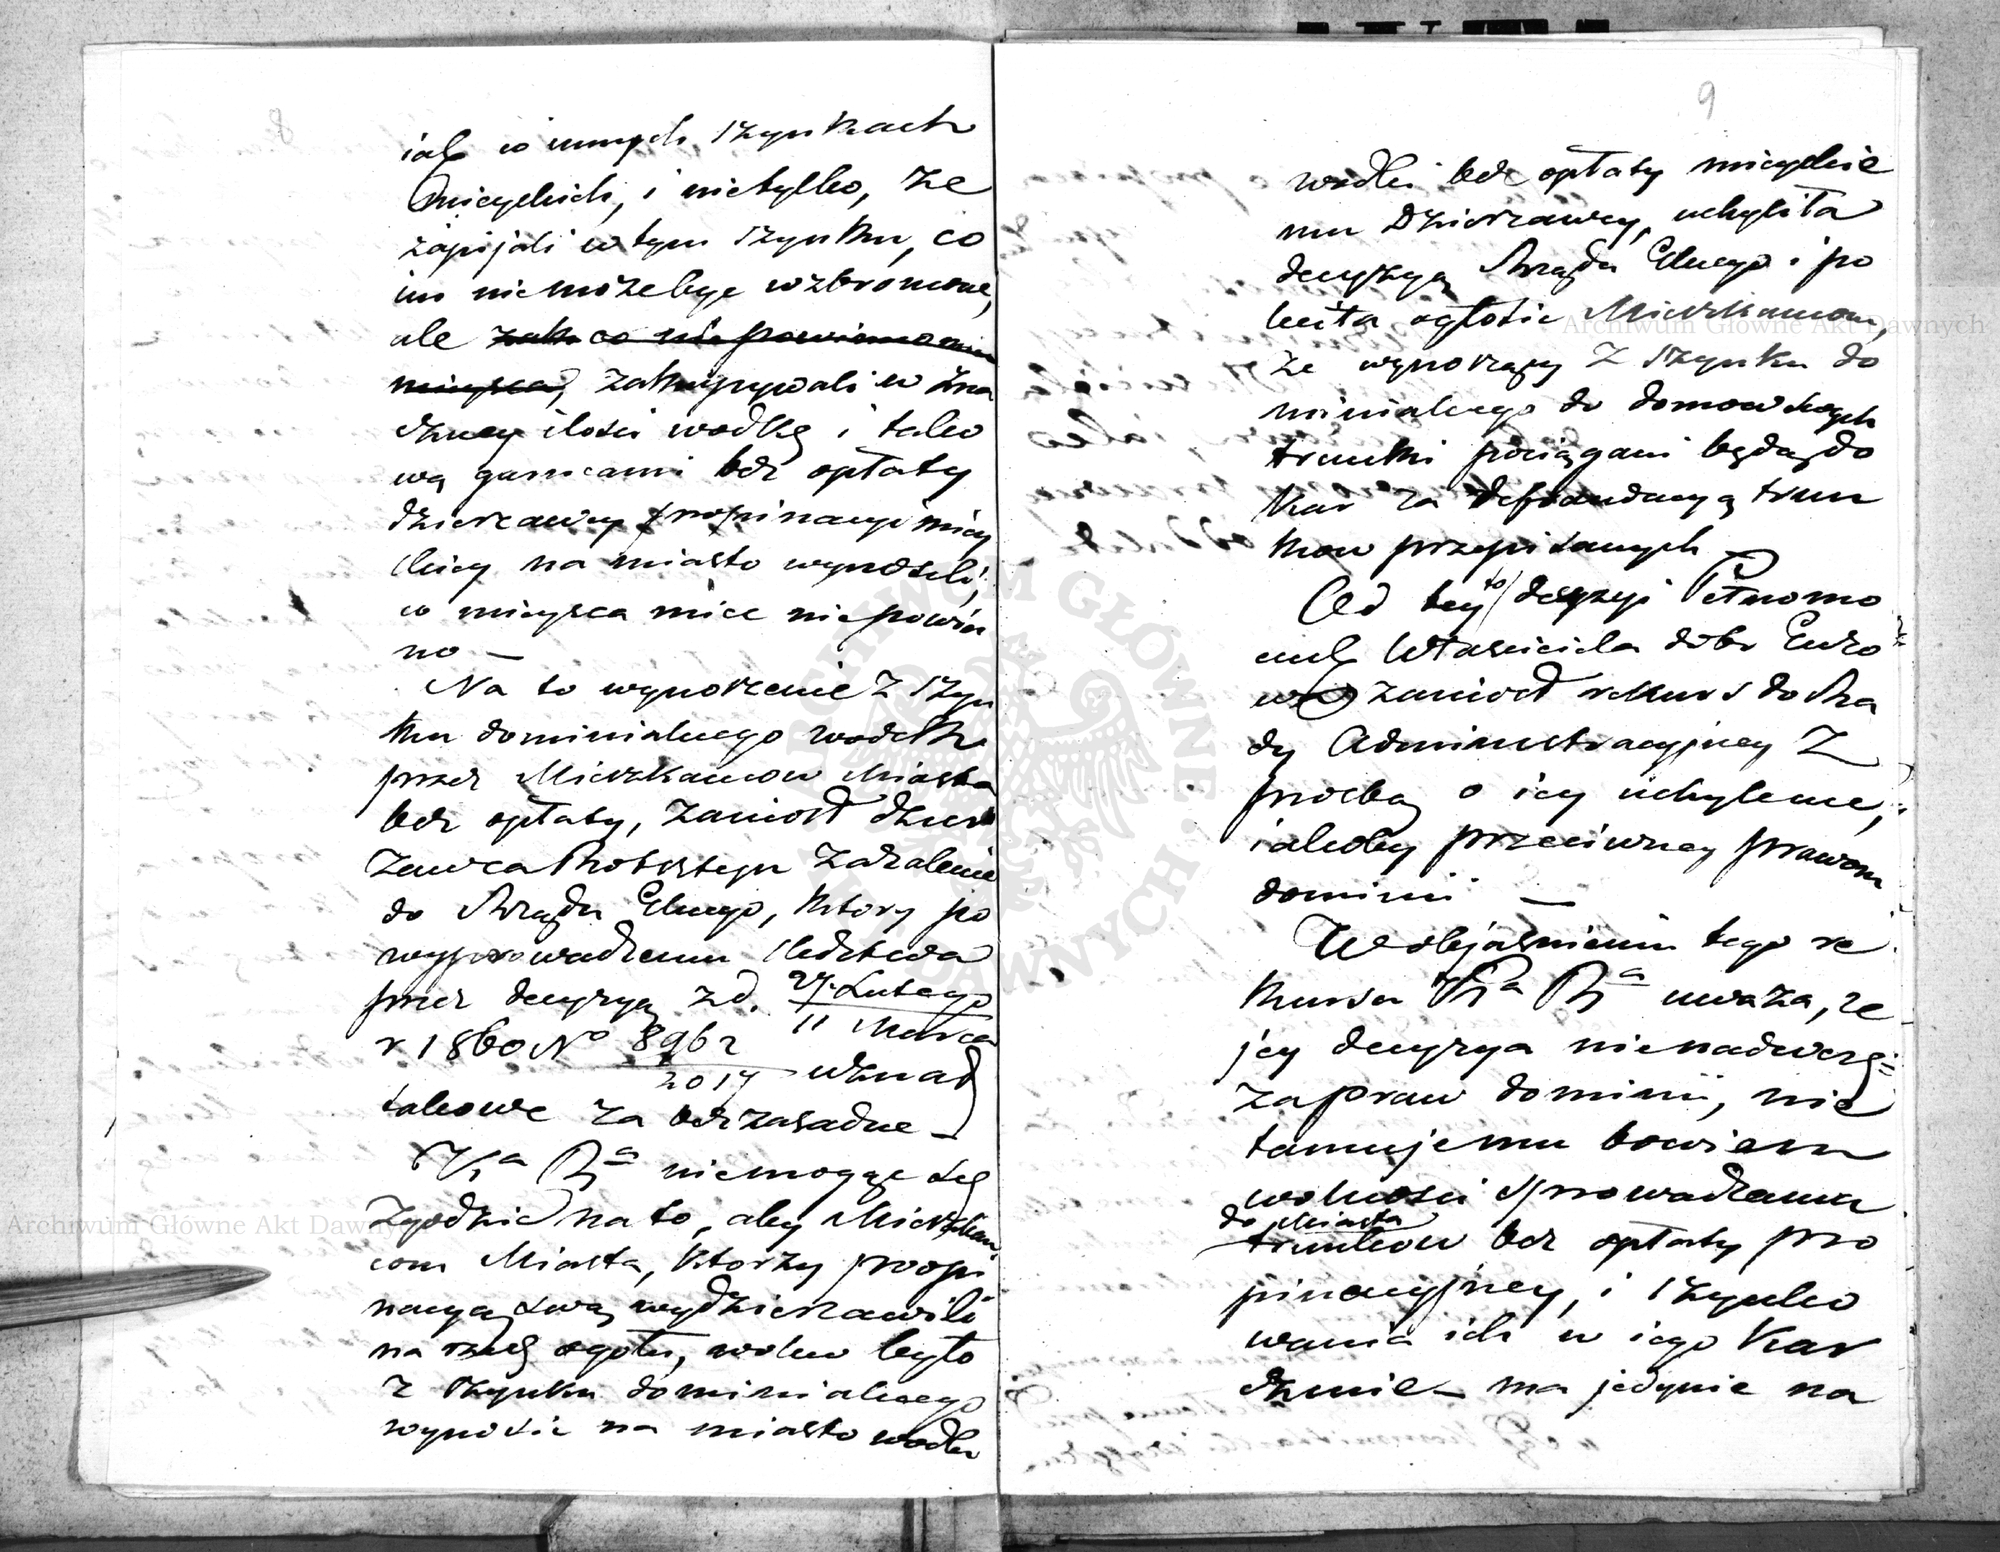 jak w innych szynkach
Mieyskich, i nietylko, że
zapijali w tym szynku, co
im niemoże być wzbronione,
ale
zakupywali w zna
czney ilości wódkę i tako
wą garncami bez opłaty
dzierzawcy propinacyi miey
skiey na miasto wynosili,
w mieysca mieć nie powin
no —
Na to wynoszenie z szyn
ku dominialnego wódek
przez Mieszkancow Miasta
bez opłaty, zaniosł dzier
żawca Rotszteyn zażalenie
do Rządu Glnego, ktory po
wyprowadzeniu śledztwa
przez decyzyą z d. 27. Lutego
11 Marca
r 1860 No 8962
2014 uznał
takowe za bezzasadne —
Ka Ra niemogąc się
zgodzić na to, aby Mieszkan
com Miasta, ktorzy propi
nacyą swą wydzierzawili
na rzecz ogołu, wolno było
z szynku dominialnego
wynosić na miasto wodki
9
wodki bez opłaty mieyskie
mu Dzierzawcy, uchyliła
decyzyą Rządu Glnego i po
leciła ogłosić Mieszkancom,
że wynoszący z szynku do
minialnego do domow swych
trunki pociągani będą do
kar za defraudacyą trun
kow przepisanych
Od tey to decyzyi Pełnomo
cnik Właściciela dobr
zaniosł rekurs do Ra
dy Administracyjney z
prośbą o iey uchylenie,
iakoby przeciwney prawom
dominii —
W objaśnieniu tego re
kursu Ka Ra uważa, że
jey decyzya nienadweręża
praw dominii, nie
tamujemu bowiem
wolności sprowadzania
do Miasta
trunkow bez opłaty pro
pinacyjney, i szynko
wania ich w iego kar
czmie — ma jedynie na